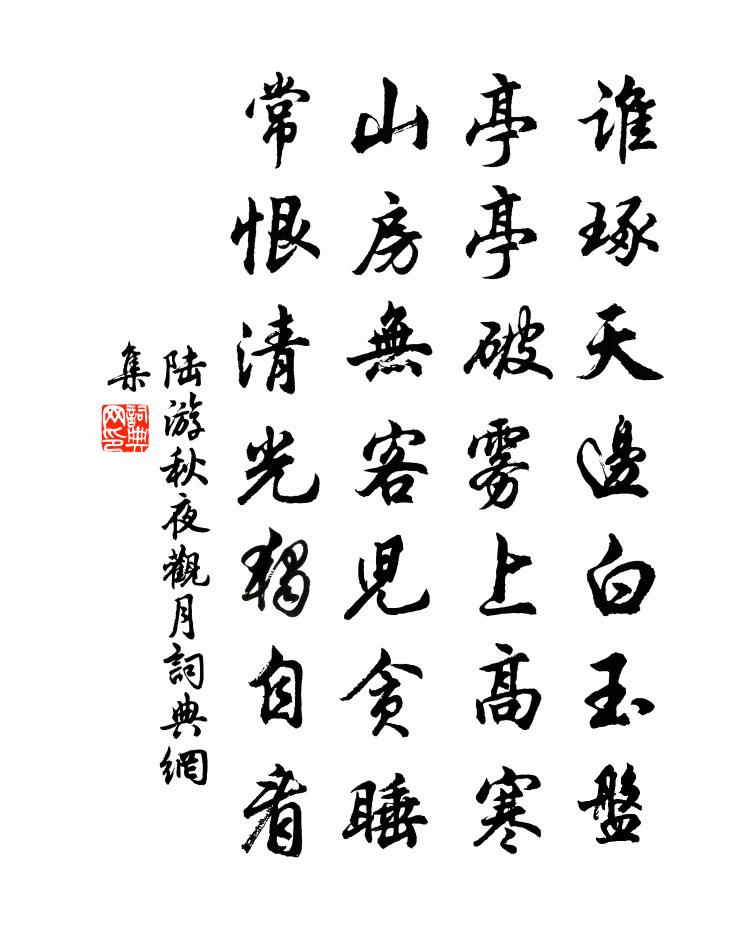 誰琢天邊白玉盤
亭亭破雾上高寒
山房無客児貪睡
常恨清光獨自看
陆游秋夜觀月詞典網
集
詞典
网印